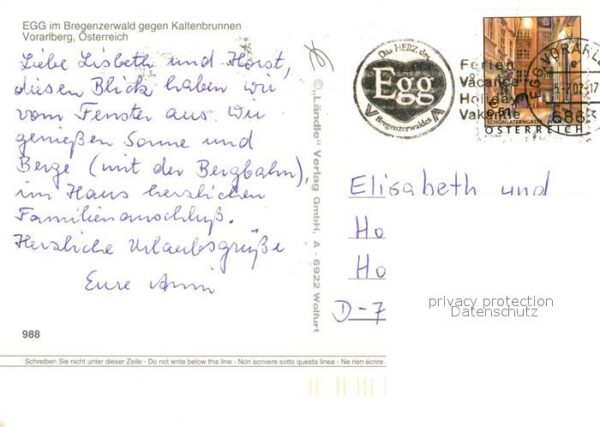 EGG im Bregenzerwald gegen Kaltenbrunnen
Vorarlberg, Österreich
Liebe Lisbeth und Horst,
diesen Blick haben wir
vom Fenster aus. Wir
genießen Sonne und
Berge (mit der Bergbahn),
im Haus herzlichen
Familienanschluß.
Herzliche Urlaubsgrüße
Eure Anni
988
© „Ländle" Verlag GmbH, A - 6922 Wolfurt
Das HERZ des
Egg
Bregenzerwaldes
Ferien
Vacance
Holiday
Vakantie
SCHÖNLATERNGASSE
ÖSTERREICH
Elisabeth und
Ho
Ho
D-7
privacy protection
Datenschutz
Schreiben Sie nicht unter dieser Zeile - Do not write below this line - Non scrivere sotto questa linea - Ne rien écrire